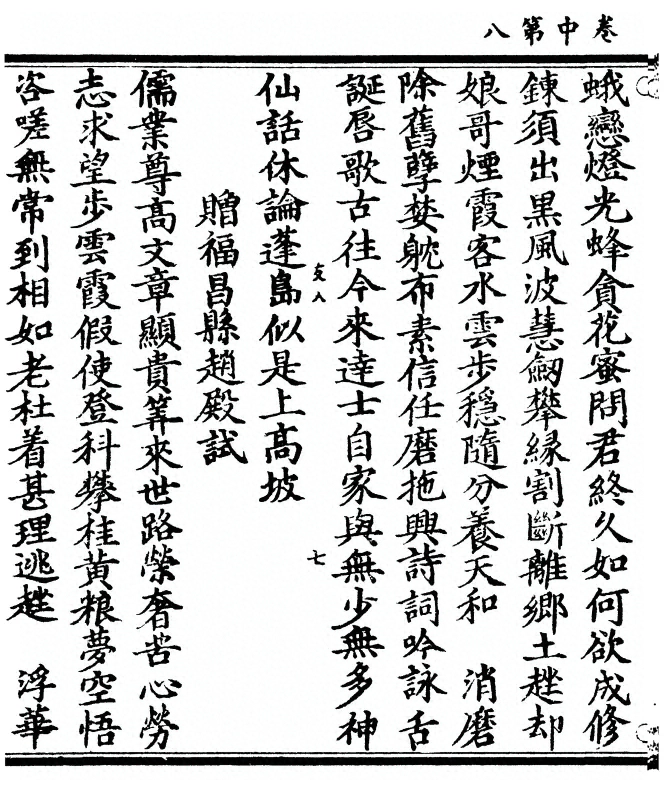 卷中第八
蛾戀燈光蜂貪花蜜問君終久如何欲成修
鍊須出黑風波慧劒攀緣割斷離鄉土趖却
娘哥煙霞客水雲步穩隨分養天和　消磨
除舊孽婪躭布素信任磨拖興詩詞吟詠舌
誕唇歌古往今來達士自家與無少無多神
友入　七
仙話休論蓬島似是上高坡
贈福昌縣趙殿試
儒業尊高文章顯貴筭來世路榮奢苦心勞
志求望步雲霞假使登科攀桂黃粮夢空悟
咨嗟無常到相如老杜着甚理逃趖　浮華